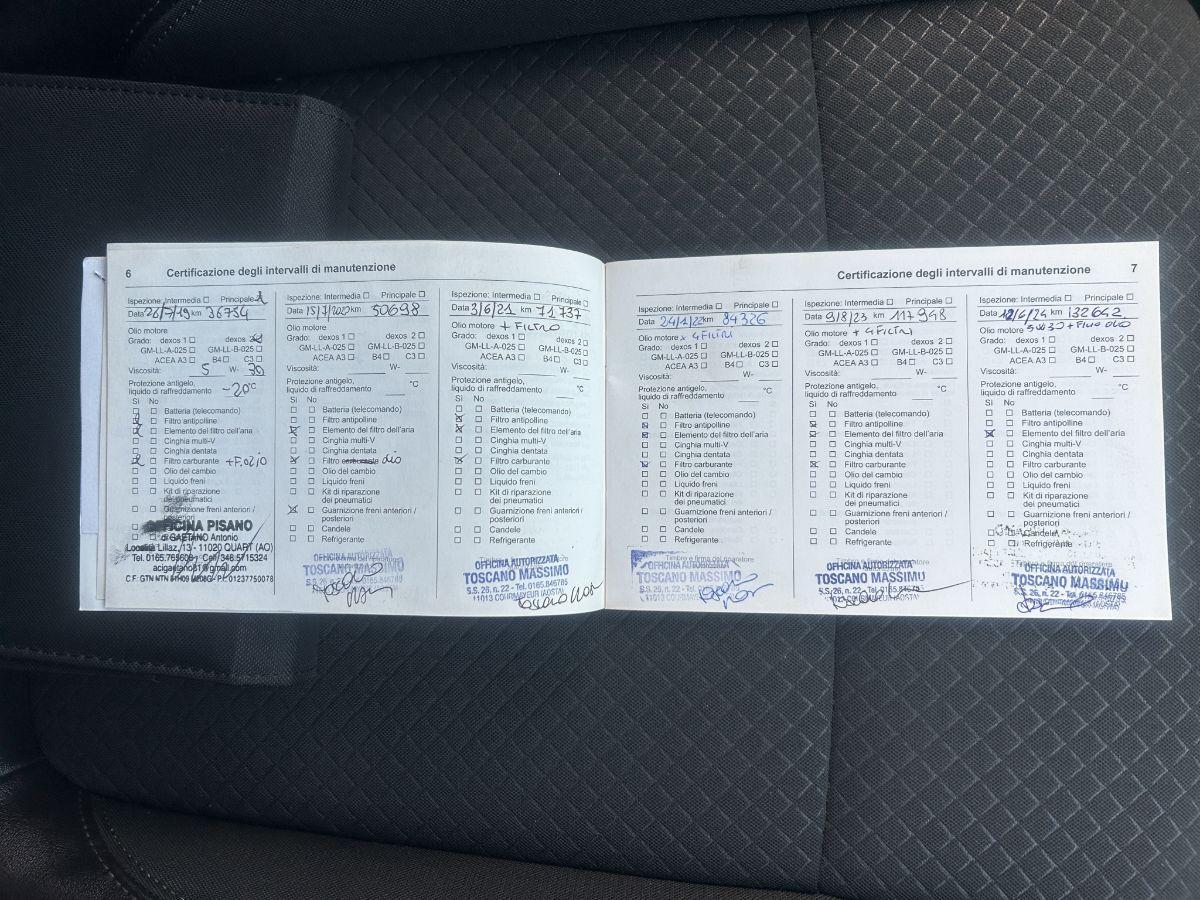 6 Certificazione degli intervalli di manutenzione
Ispezione: Intermedia Principale
Data 26/7/19 km 36754
Olio motore
Grado: dexos 1 dexos 2
GM-LL-A-025 GM-LL-B-025
ACEA A3 B4 C3
Viscosità: 5 W- 30
Protezione antigelo,
liquido di raffreddamento -20°C
Sì No
Batteria (telecomando)
Filtro antipolline
Elemento del filtro dell'aria
Cinghia multi-V
Cinghia dentata
Filtro carburante +F.olio
Olio del cambio
Liquido freni
Kit di riparazione
dei pneumatici
Guarnizione freni anteriori /
posteriori
OFFICINA PISANO
di GAETANO Antonio
Località Lillaz, 13 - 11020 QUART (AO)
Tel. 0165.765609 Cell. 346.5715324
acigaetano81@gmail.com
P.I. 01237750078
Ispezione: Intermedia Principale
Data 15/7/2020 km 50698
Olio motore
Grado: dexos 1 dexos 2
GM-LL-A-025 GM-LL-B-025
ACEA A3 B4 C3
Viscosità: W-
Protezione antigelo,
liquido di raffreddamento °C
Sì No
Batteria (telecomando)
Filtro antipolline
Elemento del filtro dell'aria
Cinghia multi-V
Cinghia dentata
Filtro carburante olio
Olio del cambio
Liquido freni
Kit di riparazione
dei pneumatici
Guarnizione freni anteriori /
posteriori
Candele
Refrigerante
OFFICINA AUTORIZZATA
TOSCANO MASSIMO
S.S. 26, n. 22 -
Ispezione: Intermedia Principale
Data 3/6/21 km 71737
Olio motore + FILTRO
Grado: dexos 1 dexos 2
GM-LL-A-025 GM-LL-B-025
ACEA A3 B4 C3
Viscosità: W-
Protezione antigelo,
liquido di raffreddamento °C
Sì No
Batteria (telecomando)
Filtro antipolline
Elemento del filtro dell'aria
Cinghia multi-V
Cinghia dentata
Filtro carburante
Olio del cambio
Liquido freni
Kit di riparazione
dei pneumatici
Guarnizione freni anteriori /
posteriori
Candele
Refrigerante
Timbro e firma del riparatore
OFFICINA AUTORIZZATA
TOSCANO MASSIMO
S.S. 26, n. 22 - Tel. 0165.846785
11013 COURMAYEUR (AOSTA)
Certificazione degli intervalli di manutenzione 7
Ispezione: Intermedia Principale
Data 24/1/22 km 84326
Olio motore x 4 FILTRI
Grado: dexos 1 dexos 2
GM-LL-A-025 GM-LL-B-025
ACEA A3 B4 C3
Viscosità: W-
Protezione antigelo,
liquido di raffreddamento °C
Sì No
Batteria (telecomando)
Filtro antipolline
Elemento del filtro dell'aria
Cinghia multi-V
Cinghia dentata
Filtro carburante
Olio del cambio
Liquido freni
Kit di riparazione
dei pneumatici
Guarnizione freni anteriori /
posteriori
Candele
Refrigerante
Timbro e firma del riparatore
OFFICINA AUTORIZZATA
TOSCANO MASSIMO
S.S. 26, n. 22 - Tel. 0165.846785
11013 COURMAYEUR (AOSTA)
Ispezione: Intermedia Principale
Data 9/8/23 km 117948
Olio motore + 4 FILTRI
Grado: dexos 1 dexos 2
GM-LL-A-025 GM-LL-B-025
ACEA A3 B4 C3
Viscosità: W-
Protezione antigelo,
liquido di raffreddamento °C
Sì No
Batteria (telecomando)
Filtro antipolline
Elemento del filtro dell'aria
Cinghia multi-V
Cinghia dentata
Filtro carburante
Olio del cambio
Liquido freni
Kit di riparazione
dei pneumatici
Guarnizione freni anteriori /
posteriori
Candele
Refrigerante
OFFICINA AUTORIZZATA
TOSCANO MASSIMO
S.S. 26, n. 22 - Tel. 0165.846785
11013 COURMAYEUR (AOSTA)
Ispezione: Intermedia Principale
Data 12/6/24 km 132642
Olio motore 5W30 + Filtro olio
Grado: dexos 1 dexos 2
GM-LL-A-025 GM-LL-B-025
ACEA A3 B4 C3
Viscosità: W-
Protezione antigelo,
liquido di raffreddamento °C
Sì No
Batteria (telecomando)
Filtro antipolline
Elemento del filtro dell'aria
Cinghia multi-V
Cinghia dentata
Filtro carburante
Olio del cambio
Liquido freni
Kit di riparazione
dei pneumatici
Guarnizione freni anteriori /
posteriori
Candele
Refrigerante
OFFICINA AUTORIZZATA
TOSCANO MASSIMO
S.S. 26, n. 22 - Tel. 0165.846785